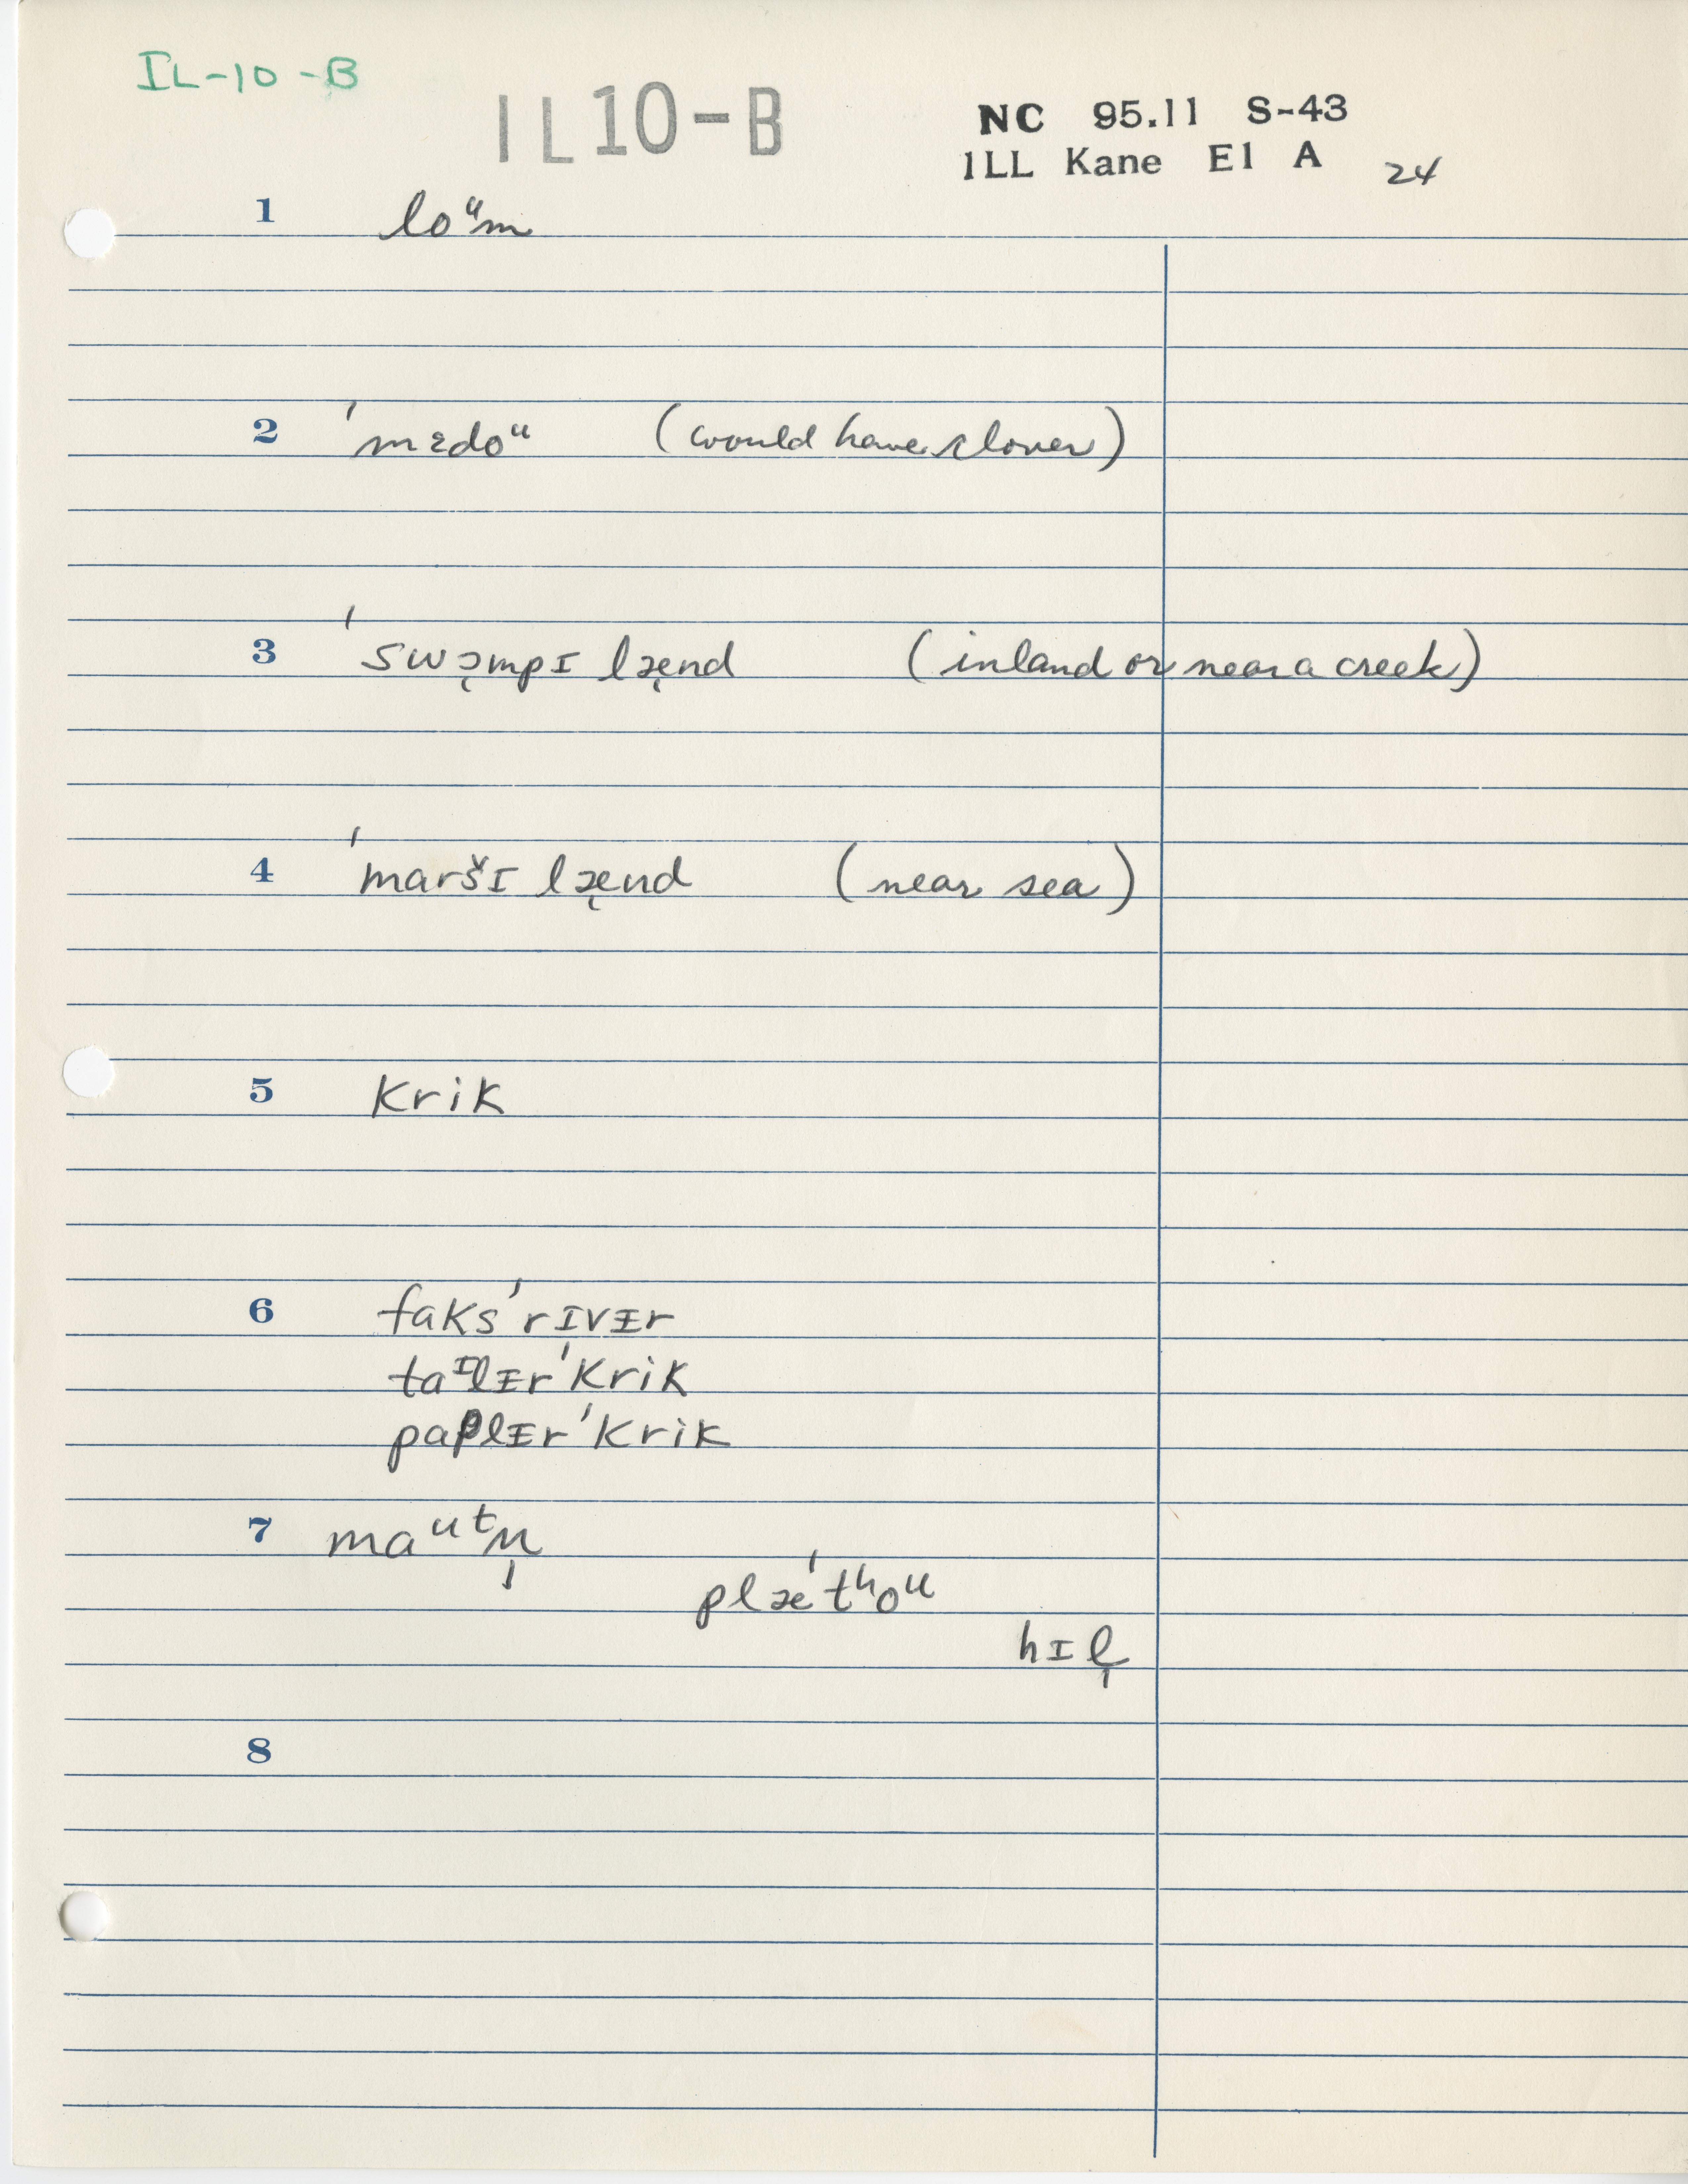 IL-10-B
IL10-B
NC 95.11 S-43
ILL Kane E1 A 24
1 loᵘm
2 ˈmɛdoᵘ (would have clover)
3 ˈswɔ̨mpɪ læ̨nd (inland or near a creek)
4 ˈmaršɪ læ̨nd (near sea)
5 krik
6 faksˈrɪvɪr
taᶦlɪrˈkrik
paplɪrˈkrik
7 maᵘᵗn̩
plæˈtʰoᵘ
hɪl̩
8